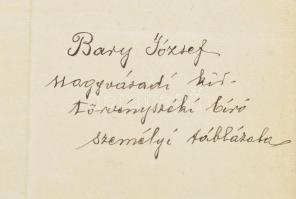 Bary József
nagyváradi kir.
törvényszéki bíró
személyi táblázata